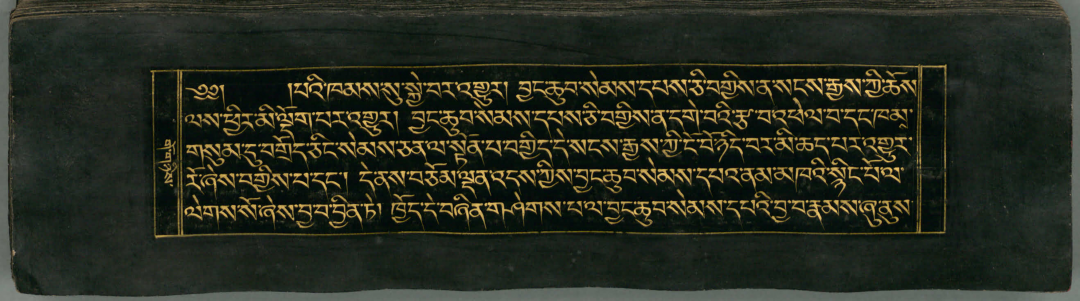 ༄༅། །པའི་ཁམས་སུ་སྐྱེ་བར་འགྱུར། བྱང་ཆུབ་སེམས་དཔས་ཅི་བགྱིས་ན་སངས་རྒྱས་ཀྱི་ཆོས་
ལས་ཕྱིར་མི་ལྡོག་པར་འགྱུར། བྱང་ཆུབ་སེམས་དཔས་ཅི་བགྱིས་ན་དགེ་བའི་རྩ་བ་འཕེལ་བ་དང་ཁམ
གསུམ་དུ་བགྲོད་ཅིང་སེམས་ཅན་ལ་སྟོན་པ་བགྱིད་དེ་སངས་རྒྱས་ཀྱི་ངོ་བོ་ཉིད་བར་མི་ཆད་པར་འགྱུར་
རོ་ཞེས་བགྱིས་པ་དང་། དེ་ནས་བཅོམ་ལྡན་འདས་ཀྱིས་བྱང་ཆུབ་སེམས་དཔའ་ནམ་མཁའི་སྙིང་པོ་ལ་
ལེགས་སོ་ཞེས་བྱ་བ་བྱིན་ཏེ། ཁྱོད་དེ་བཞིན་གཤེགས་པ་ལ་བྱང་ཆུབ་སེམས་དཔའི་བྱ་བ་རྣམས་ཞུ་ནུས་